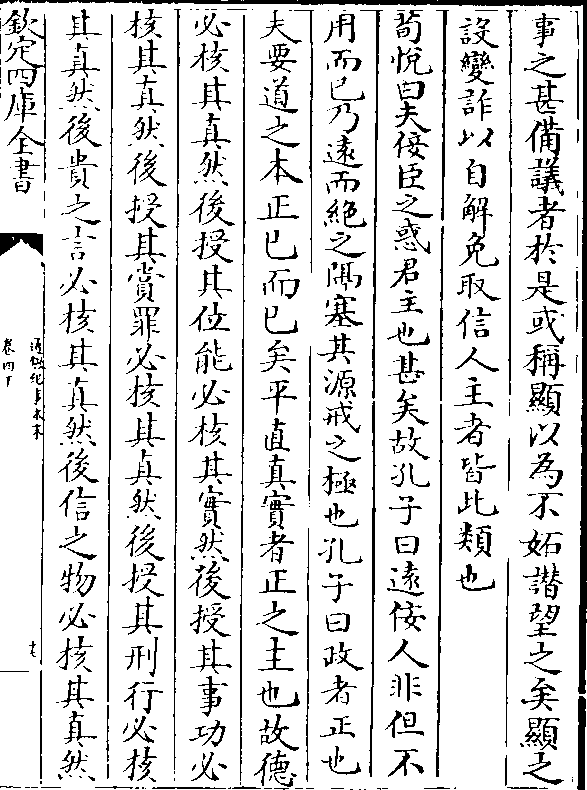 事之甚備議者於是或稱顯以為不妬譛望之矣顯之
設變詐以自解免取信人主者皆此類也
荀悅曰夫佞臣之惑君主也甚矣故孔子曰逺佞人非但不
用而已乃逺而絶之隔塞其源戒之極也孔子曰政者正也
夫要道之本正已而已矣平直真實者正之主也故德
必核其真然後授其位能必核其實然後授其事功必
核其真然後授其賞罪必核其真然後授其刑行必核
其真然後貴之言必核其真然後信之物必核其真然
欽定四庫全書
通鑑紀事本末
卷四下